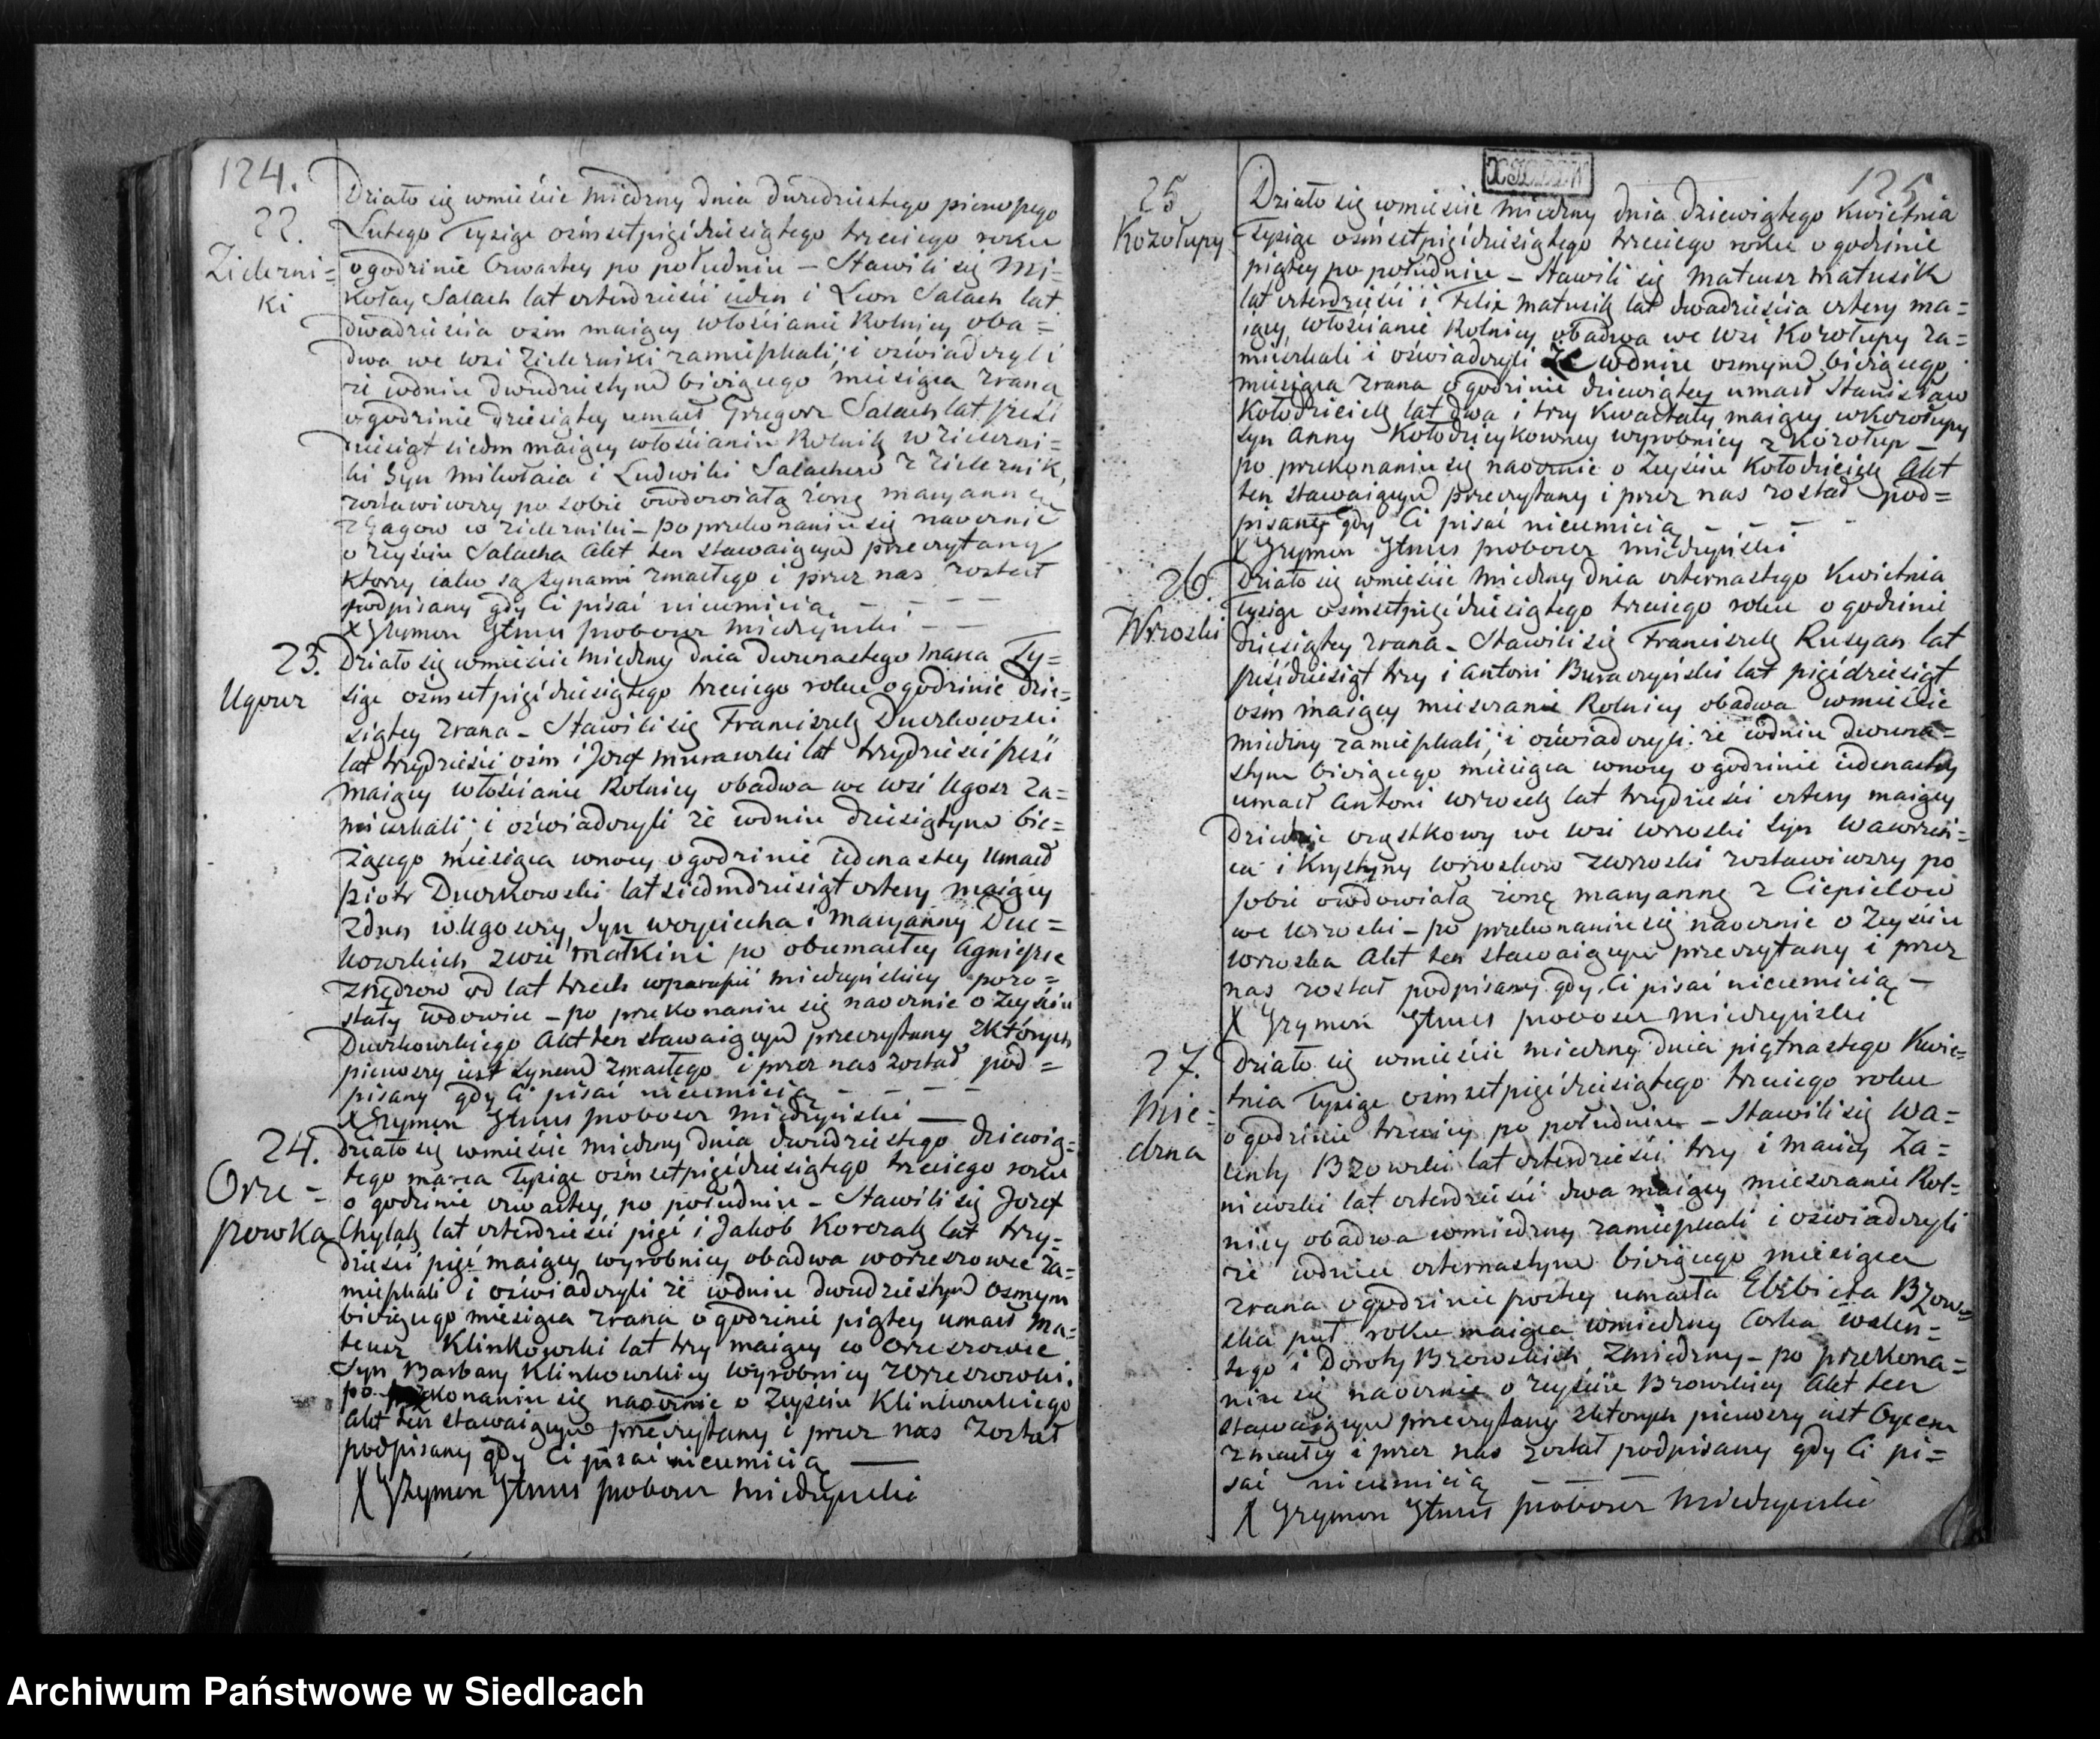 124.
22.
Zielerni=
ki
Działo się wmieście Miedzny dnia dwudziestego pierwszego
Lutego Tysiąc ośmsetpięćdziesiątego trzeciego roku
o godzinie Czwartey po południu – Stawili się Mi=
kołay Salach lat czterdzieści ieden i Leon Salach lat
dwadzieścia ośm maiący włościanie Rolnicy oba=
dwa we wsi Zielerniki zamieszkali; i oświadczyli
że wdniu dwudziestym bieżącego miesiąca zrana
o godzinie dziesiątey umarł Grzegorz Salach lat sześć
dziesiąt siedm maiący włościanin Rolnik w Zielerni=
ki Syn Mikołaia i Ludwiki Salachów z Zielernik,
zostawiwszy po sobie owdowiałą żonę Maryannę
z Gagow w Zielerniki – po przekonaniu się naocznie
o Zeyściu Salacha Akt ten stawaiącym przeczytany
ktorzy iako są synami zmarłego i przez nas został
podpisany gdy Ci pisać nieumieią – – – –
X Szymon Stmis proboszcz Miedzyński – –
23.
Ugoszcz
Działo się wmieście Miedzny dnia dwunastego Marca Ty=
siąc ośmsetpięćdziesiątego trzeciego roku o godzinie dzie=
siątey zrana – Stawili się Franciszek Duczkowski
lat trzydzieści ośm i Jozef Murawski lat trzydzieści sześć
maiący włościanie Rolnicy obadwa we wsi Ugoszcz Za=
mieszkali; i oświadczyli że wdniu dziesiątym bie=
żącego miesiąca wnocy o godzinie iedenastey umarł
Piotr Duczkowski lat siedmdziesiąt cztery maiący
Zdun w Ugoszczy, Syn Woyciecha i Maryanny Duc=
kowskich zwsi Matkini po obumarłey Agnieszce
Zhędzow od lat trzech wparafii Miedzyńskiey pozo=
stały wdowiec – po przekonaniu się naocznie o Zeyściu
Duczkowskiego Akt ten stawaiącym przeczytany zktórych
pierwszy iest synem zmarłego i przez nas został pod=
pisany gdy Ci pisać nieumieią – – – –
X Szymon Stmis proboszcz Miedzyński –
24.
Orze=
szowka
Działo się wmieście Miedzny dnia dwudziestego dziewią=
tego Marca Tysiąc ośmsetpięćdziesiątego trzeciego roku
o godzinie czwartey po południu – Stawili się Jozef
Chylak lat czterdzieści pięć i Jakób Korczak lat trzy=
dzieści pięć maiący wyrobnicy obadwa worzeszowce za=
mieszkali i oświadczyli że wdniu dwudziestym osmym
bieżącego miesiąca zrana o godzinie piątey umarł Ma=
teusz Klinkowski lat trzy maiący w Orzeszowce
Syn Barbary Klinkowskiey wyrobnicy zOrzeszowki,
po przekonaniu się naocznie o Zeyściu Klinkowskiego
Akt ten stawaiącym przeczytany i przez nas został
podpisany gdy Ci pisać nieumieią –
X Szymon Stmis proboszcz Miedzyński
125
25
Kozołupy
Działo się wmieście Miedzny dnia dziewiątego Kwietnia
Tysiąc ośmsetpięćdziesiątego trzeciego roku o godzinie
piątey po południu – Stawili się Mateusz Matusik
lat czterdzieści i Felix Matusik lat dwadzieścia cztery ma=
iący włościanie Rolnicy obadwa we wsi Kozołupy za=
mieszkali i oświadczyli że wdniu osmym bieżącego
miesiąca zrana o godzinie dziewiątey umarł Stanisław
Kołodzieick lat dwa i trzy kwartały maiący wKozołupy
Syn Anny Kołodzieykowney wyrobnicy z Kozołup –
po przekonaniu się naocznie o Zeyściu Kołodzieick Akt
ten stawaiącym przeczytany i przez nas został pod=
pisany gdy Ci pisać nieumieią – – – –
X Szymon Stmis proboszcz Miedzyński
26.
Wrzoski
Działo się wmieście Miedzny dnia czternastego Kwietnia
Tysiąc ośmsetpięćdziesiątego trzeciego roku o godzinie
dziesiątey zrana – Stawili się Franciszek Rusyan lat
sześćdziesiąt trzy i Antoni Buraczyński lat pięćdziesiąt
ośm maiący mieszczanie Rolnicy obadwa wmieście
Miedzny zamieszkali; i oświadczyli: że wdniu dwuna=
stym bieżącego miesiąca wnocy o godzinie iedenastey
umarł Antoni Wrzosek lat trzydzieści cztery maiący
Dziedzic cząstkowy we wsi Wrzoski Syn Wawrzeń=
ca i Krystyny Wrzosków zWrzoski zostawiwszy po
sobie owdowiałą żonę Maryannę z Ciepielow
we Wrzoski – po przekonaniu się naocznie o Zeyściu
Wrzoska Akt ten stawaiącym przeczytany i przez
nas został podpisany gdy Ci pisać nieumieią –
X Szymon Stmis proboszcz Miedzyński
27.
Mie=
dzna
Działo się wmieście Miedzny dnia piętnastego Kwie=
tnia Tysiąc ośmsetpięćdziesiątego trzeciego roku
o godzinie trzeciey po południu – Stawili się Wa=
lenty Bzowski lat czterdzieści trzy i Maciey Za=
niewski lat czterdzieści dwa maiący mieszczanie Rol=
nicy obadwa wmiedzny zamieszkali i oświadczyli
że wdniu czternastym bieżącego miesiąca
zrana o godzinie szostey umarła Elżbieta Bzow=
ska puł roku maiąca wmiedzny Corka Walen=
tego i Doroty Bzowskich Zmiedzny – po przekona=
niu się naocznie o Zeyściu Bzowskiey Akt ten
stawaiącym przeczytany zktorych pierwszy iest Oycem
zmarłey i przez nas został podpisany gdy Ci pi=
sać nieumieią – – –
X Szymon Stmis proboszcz Miedzyński
Archiwum Państwowe w Siedlcach